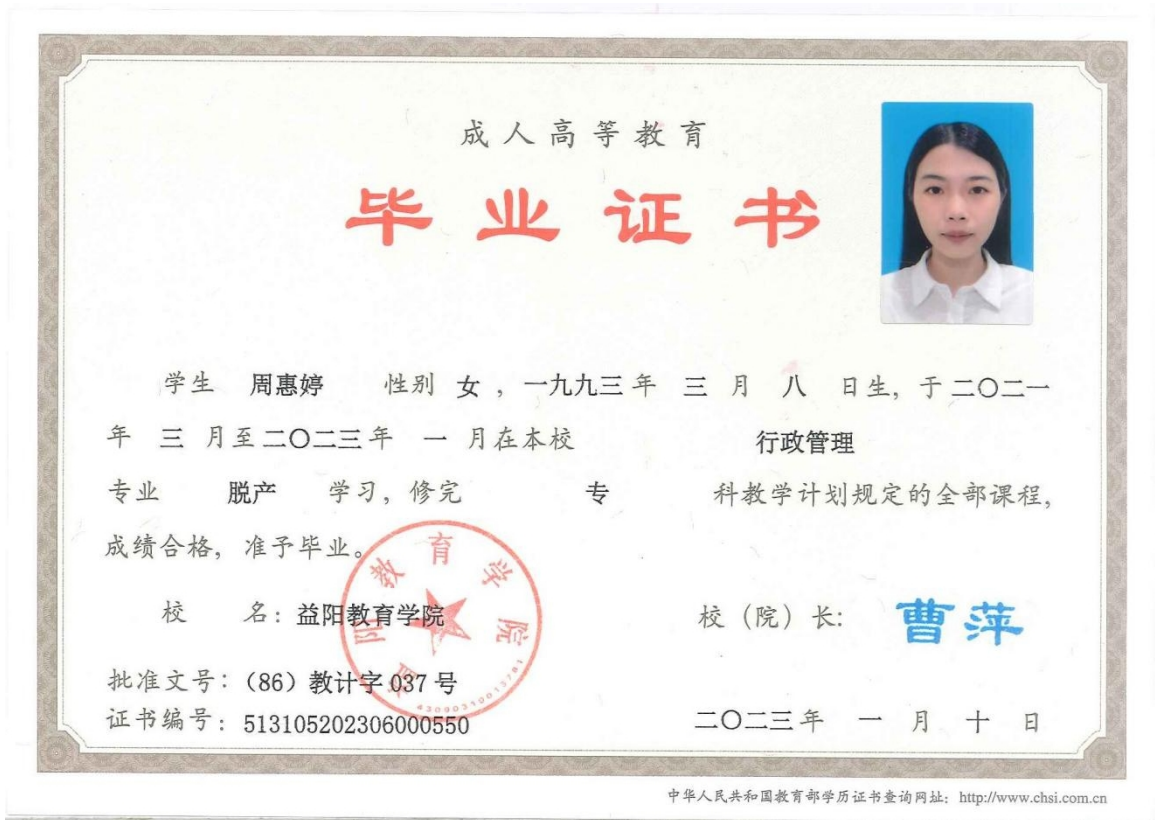 成人高等教育
毕业证书
学生 周惠婷 性别 女 , 一九九三 年 三 月 八 日生, 于 二〇二一
年 三 月至 二〇二三 年 一 月在本校 行政管理
专业 脱产 学习, 修完 专 科教学计划规定的全部课程,
成绩合格, 准予毕业。
益阳教育学院
43090310013781
校 名: 益阳教育学院 校(院)长: 曹萍
批准文号: (86) 教计字 037 号
证书编号: 513105202306000550 二〇二三 年 一 月 十 日
中华人民共和国教育部学历证书查询网址: http://www.chsi.com.cn